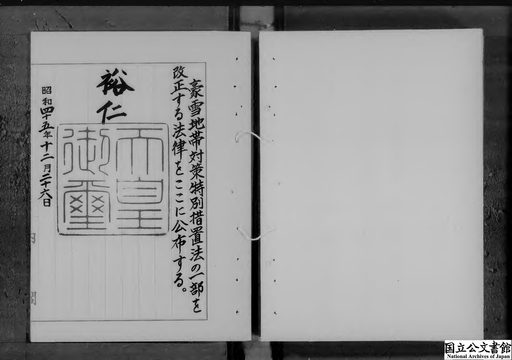 豪雪地帯対策特別措置法の一部を
改正する法律をここに公布する。
裕仁
天皇
御璽
昭和四十五年十二月二十六日
国立公文書館
National Archives of Japan